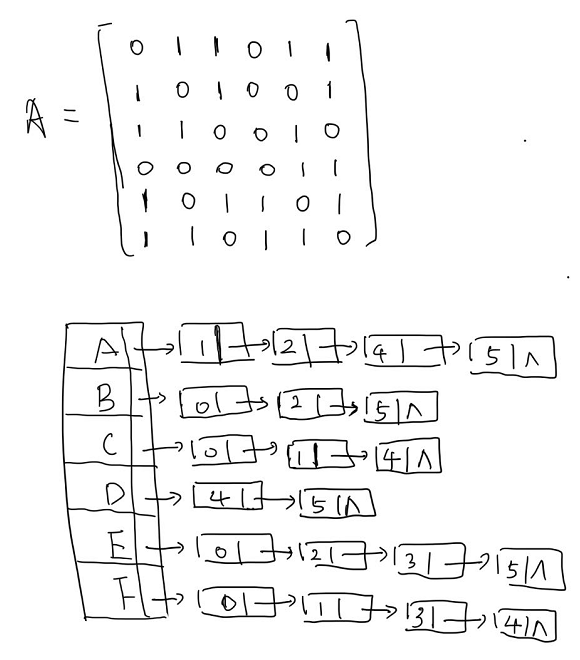 A =
0 1 1 0 1 1
1 0 1 0 0 1
1 1 0 0 1 0
0 0 0 0 1 1
1 0 1 1 0 1
1 1 0 1 1 0
A → 1 | → 2 | → 4 | → 5 | ∧
B → 0 | → 2 | → 5 | ∧
C → 0 | → 1 | → 4 | ∧
D → 4 | → 5 | ∧
E → 0 | → 2 | → 3 | → 5 | ∧
F → 0 | → 1 | → 3 | → 4 | ∧